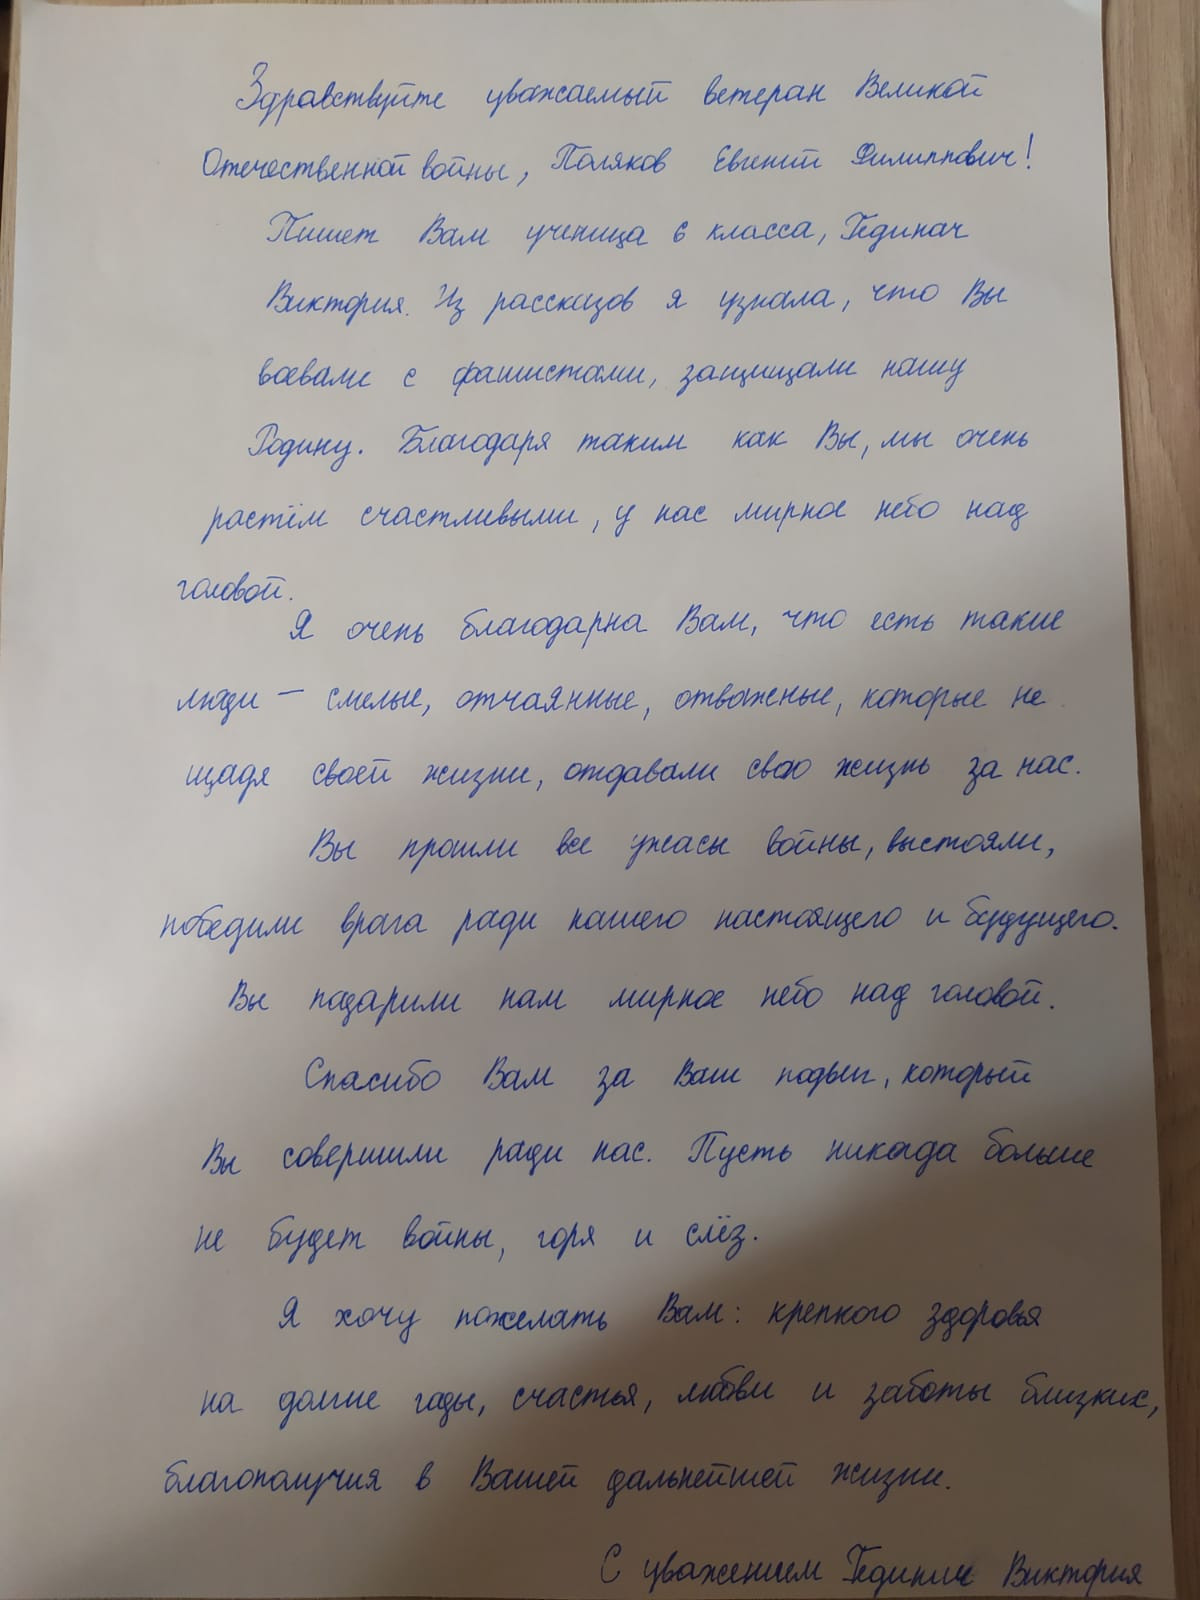 Здравствуйте уважаемый ветеран Великой
Отечественной войны, Поляков Евгений Филиппович!
Пишет Вам ученица 6 класса,
Виктория. Из рассказов я узнала, что Вы
воевали с фашистами, защищали нашу
Родину. Благодаря таким как Вы, мы очень
растём счастливыми, у нас мирное небо над
головой.
Я очень благодарна Вам, что есть такие
люди — смелые, отчаянные, отважные, которые не
щадя своей жизни, отдавали свою жизнь за нас.
Вы прошли все ужасы войны, выстояли,
победили врага ради нашего настоящего и будущего.
Вы подарили нам мирное небо над головой.
Спасибо Вам за Ваш подвиг, который
Вы совершили ради нас. Пусть никогда больше
не будет войны, горя и слёз.
Я хочу пожелать Вам: крепкого здоровья
на долгие годы, счастья, любви и заботы близких,
благополучия в Вашей дальнейшей жизни.
С уважением Виктория